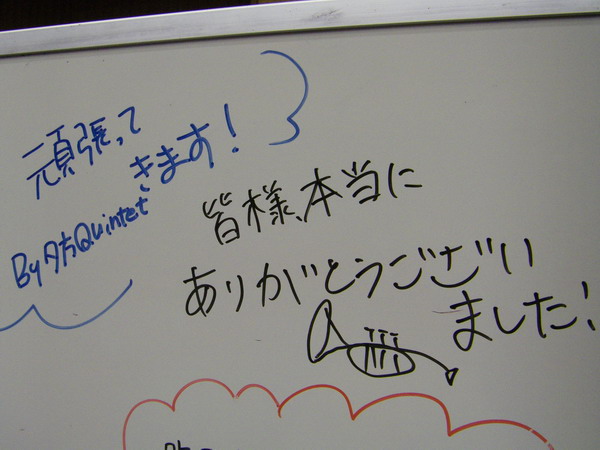 頑張って
きます!
By 夕方Quintet
皆様、本当に
ありがとうございい
ました!